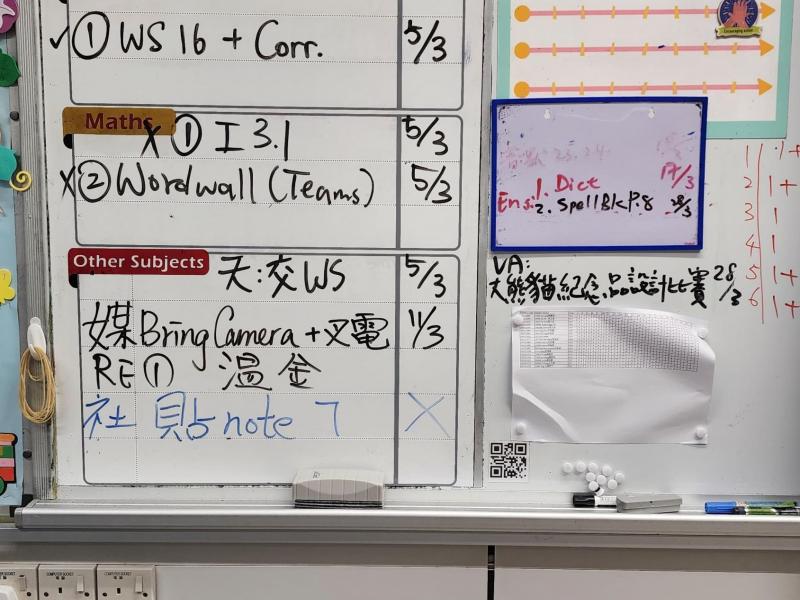 ✓ ① WS 16 + Corr. 5/3
Maths
X ① I 3.1 5/3
X ② Wordwall (Teams) 5/3
Other Subjects
天:交WS 5/3
媒 Bring Camera + 叉電 11/3
RE ① 溫金
社 貼note 7 X
Encouraging action
1. Dict 17/3
Eng: 2. Spell Bk P.8 18/3
VA:
大熊貓紀念品設計比賽 28/3
1 1+
2 1+
3 1
4 1
5 1+
6 1+
COMPUTER SOCKET
COMPUTER SOCKET
COMPUTER SOCKET